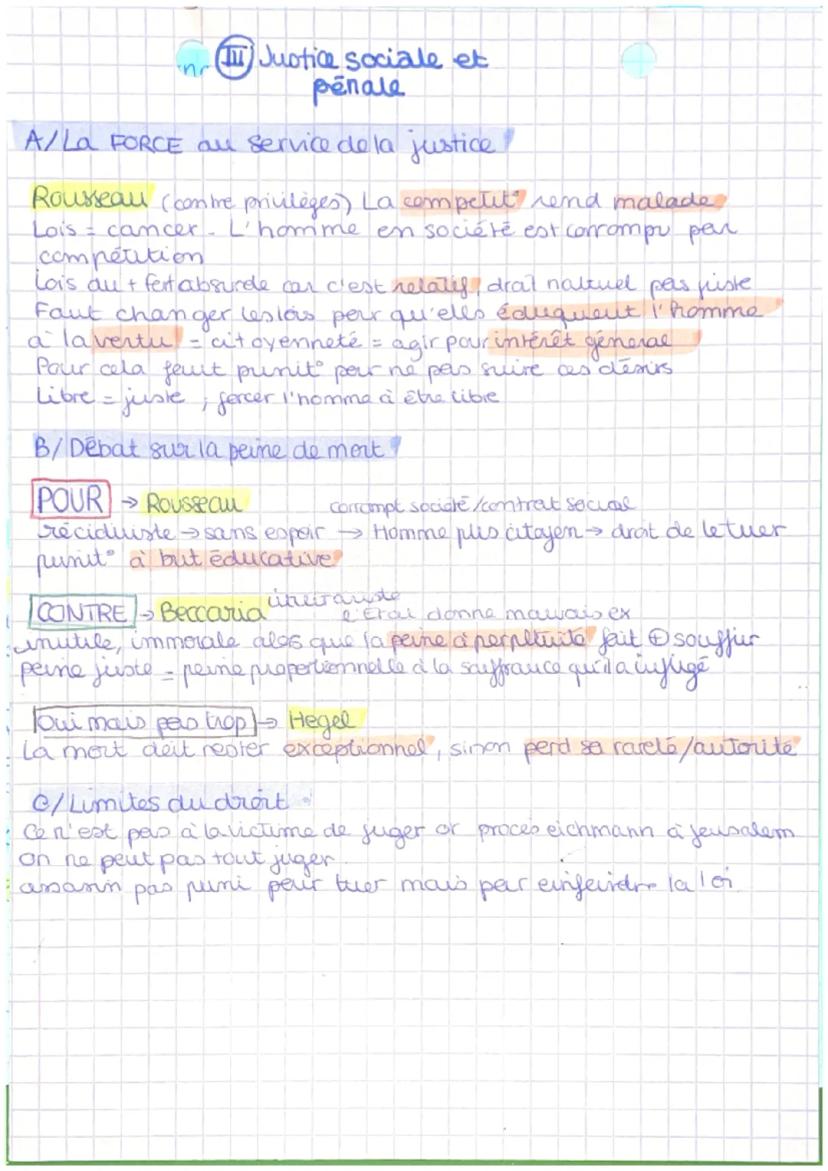 III Justice sociale et
pénale
A/ La FORCE au service de la justice
Rousseau (contre privilèges) La compétit° rend malade
Lois = cancer - L'homme en société est corrompu par
compétition
Lois du + fort absurde car c'est relatif, droit naturel pas juste
Faut changer les lois pour qu'elles éduquent l'homme
à la vertu = citoyenneté = agir pour intérêt géneral
Pour cela faut punit° pour ne pas suire ces désirs
Libre = juste ; forcer l'homme à être libre
B/ Débat sur la peine de mort
POUR → Rousseau corrompt société/contrat social
récidiviste → sans espoir → Homme plus citoyen → droit de le tuer
punit° à but éducative
CONTRE → Beccaria l'Etat donne mauvais ex
inutile, immorale alos que la peine à perpétuité fait + souffrir
peine juste = peine proportionnelle à la souffrance qu'il a infligé
Oui mais pas trop → Hegel
La mort doit rester exceptionnel, sinon perd sa rareté/autorité
C/ Limites du droit
Ce n'est pas à la victime de juger or procès eichmann à jerusalem
on ne peut pas tout juger
assassin pas puni pour tuer mais par enfeindre la loi